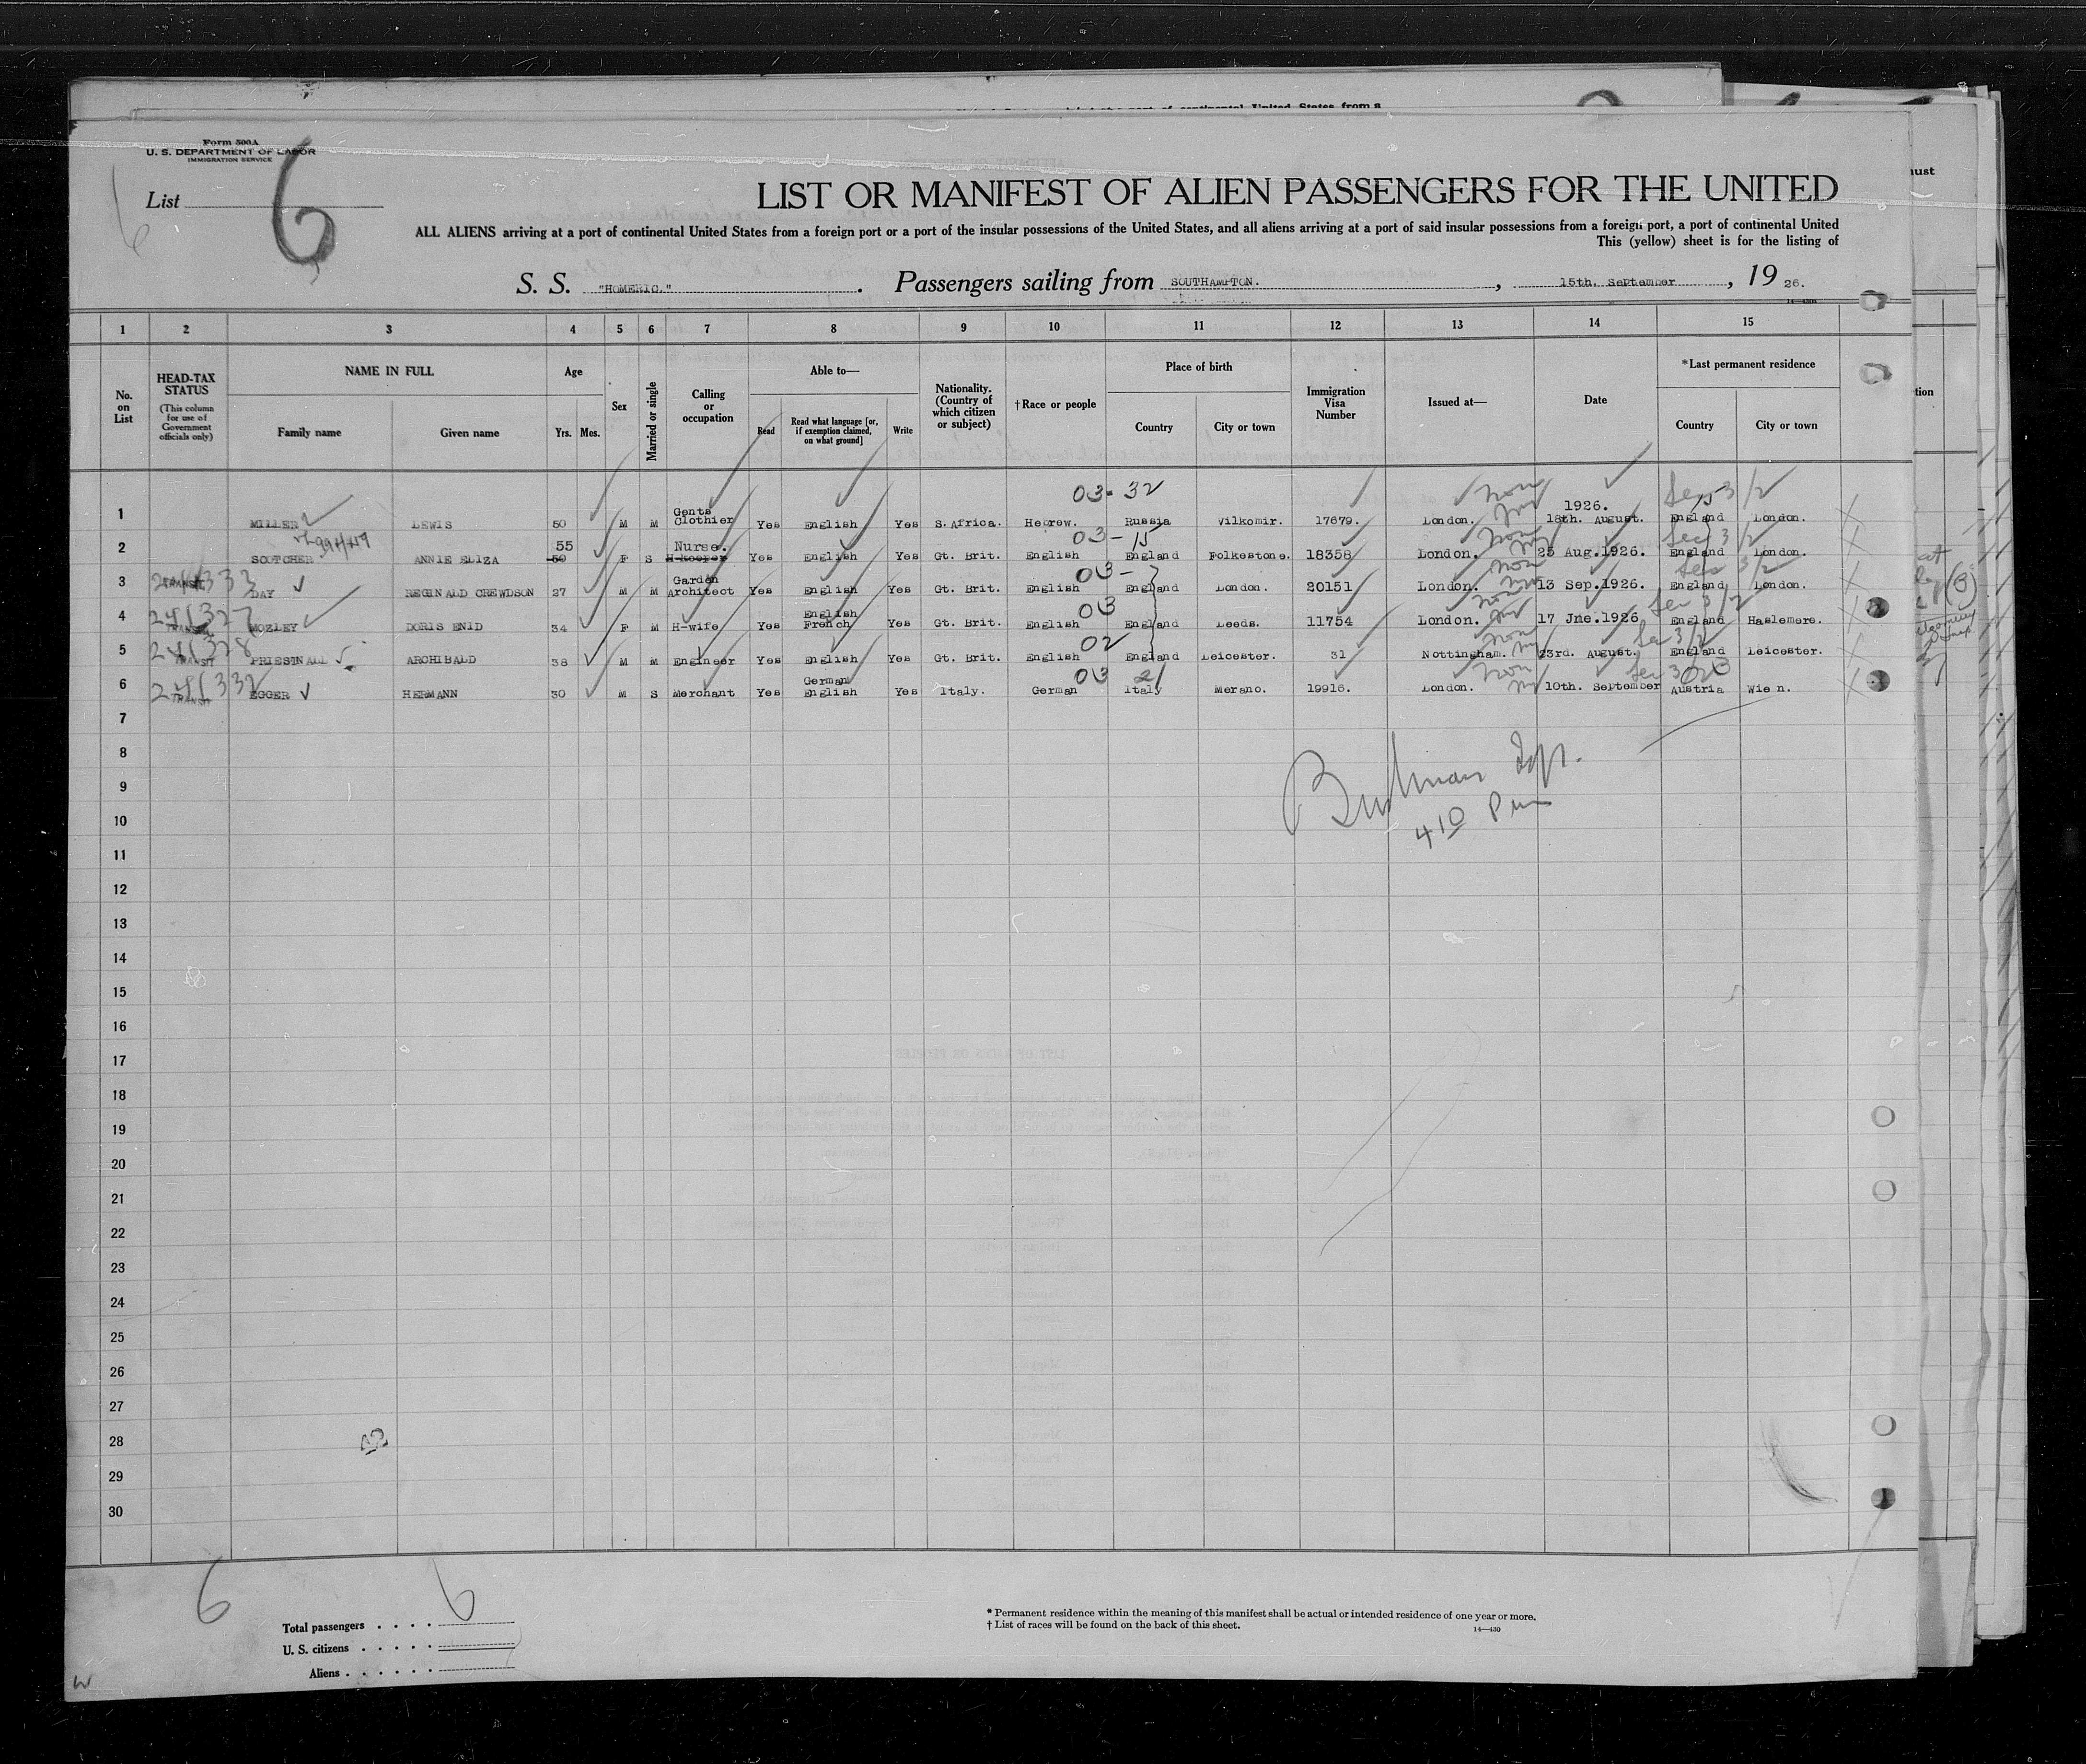 Form 500A
U. S. DEPARTMENT OF LABOR
IMMIGRATION SERVICE
List
6
LIST OR MANIFEST OF ALIEN PASSENGERS FOR THE UNITED
ALL ALIENS arriving at a port of continental United States from a foreign port or a port of the insular possessions of the United States, and all aliens arriving at a port of said insular possessions from a foreign port, a port of continental United
This (yellow) sheet is for the listing of
S. S. "HOMERIC." . Passengers sailing from SOUTHAMPTON. , 15th. September , 19 26.
1 2 3 4 5 6 7 8 9 10 11 12 13 14 15
No. on List
HEAD-TAX STATUS
(This column for use of Government officials only)
NAME IN FULL
Family name
Given name
Age
Yrs. Mos.
Sex
Married or single
Calling or occupation
Able to—
Read
Read what language [or, if exemption claimed, on what ground]
Write
Nationality. (Country of which citizen or subject)
†Race or people
Place of birth
Country
City or town
Immigration Visa Number
Issued at—
Date
*Last permanent residence
Country
City or town
03-32
1 MILLER LEWIS 50 M M Gents Clothier Yes English Yes S. Africa. Hebrew. Russia Vilkomir. 17679. London. 1926. 18th. August. England London.
03-15
2 SCOTCHER ANNIE ELIZA 55 50 F S Nurse. H-keeper Yes English Yes Gt. Brit. English England Folkestone. 18358 London. 25 Aug.1926. England London.
03-7
3 TRANSIT DAY REGINALD CREWDSON 27 M M Garden Architect Yes English Yes Gt. Brit. English England London. 20151 London. 13 Sep.1926. England London.
03
4 TRANSIT MOZLEY DORIS ENID 34 F M H-wife Yes English French Yes Gt. Brit. English England Leeds. 11754 London. 17 Jne.1926 England Haslemere.
02
5 241328 TRANSIT PRIESTNALL ARCHIBALD 38 M M Engineer Yes English Yes Gt. Brit. English England Leicester. 31 Nottingham. 23rd. August. England Leicester.
03 21
6 241332 TRANSIT EGGER HERMANN 30 M S Merchant Yes German English Yes Italy. German Italy Merano. 19916. London. 10th. September Austria Wien.
7
8
9
410
10
11
12
13
14
15
16
17
18
19
20
21
22
23
24
25
26
27
28
29
30
6 6
Total passengers
U. S. citizens
Aliens
* Permanent residence within the meaning of this manifest shall be actual or intended residence of one year or more.
† List of races will be found on the back of this sheet.
14—430